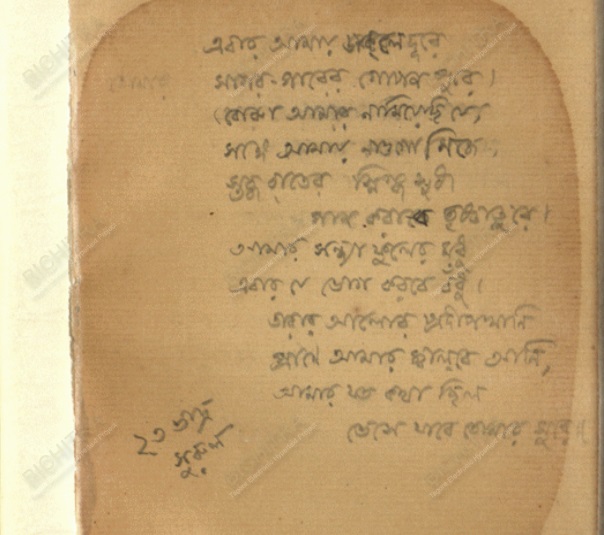 এবার আমায় ডাকলে দূরে
সাগর-পারের গোপন পুরে।
বোঝা আমার নামিয়েছি যে,
সঙ্গে আমায় নাওগো নিজে,
স্তব্ধ রাতের স্নিগ্ধ সুধা
পান করাবে তৃষ্ণাতুরে।
আমার সন্ধ্যা ফুলের মধু
এবার যে ভোগ করবে বঁধু।
তারার আলোর প্রদীপখানি
প্রাণে আমার জ্বালবে আনি,
আমার যত কথা ছিল
ভেসে যাবে তোমার সুরে।
২৩ ভাদ্র
সুরুল